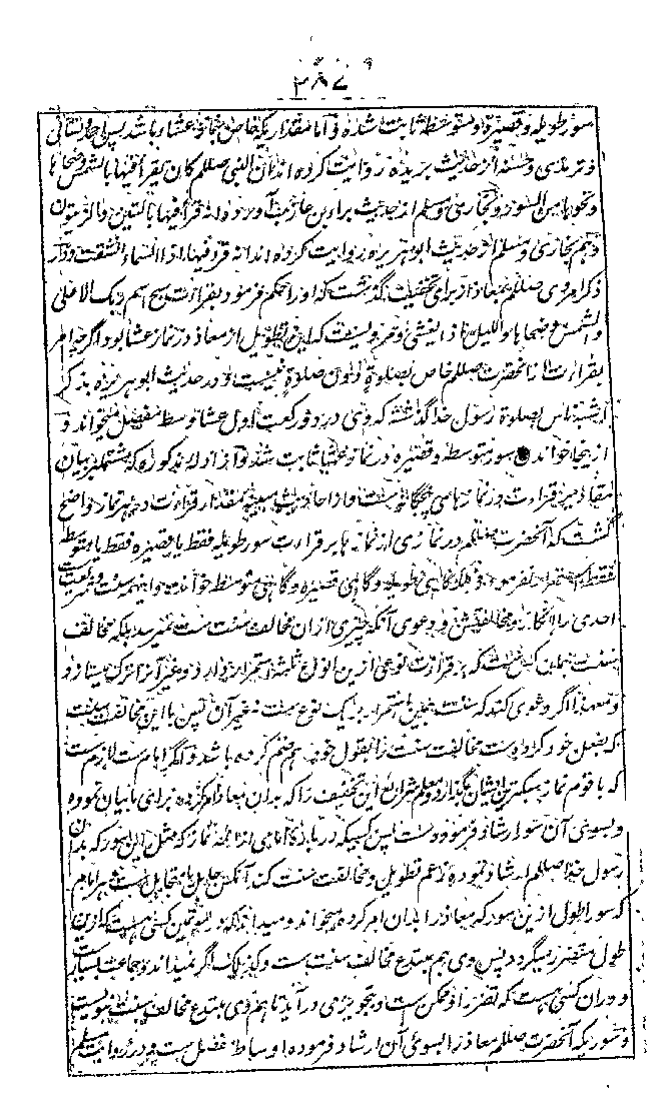 ۲۸۷
سور طویله و قصیره و متوسطه ثابت شده و اما مقداریکه خاص بنماز عشاء باشد پس احمد و نسائی
و ترمذی و حسنه از حدیث بریده روایت کرده اند ان النبی صللم کان یقرأ فیها بالشمس وضحاها
و نحوها من السور و بخاری و مسلم از حدیث براء بن عازب آورده انه قرأ فیها بالتین والزیتون
و هم بخاری و مسلم از حدیث ابو هریره روایت کرده اند انه قرأ فیها اذا السماء انشقت و در
ذکر امر وی صللم بمعاذ از برای تخفیف گذشت که او را حکم فرمود بقراءت سبح اسم ربک الاعلی
والشمس وضحاها واللیل اذا یغشی و که این تطویل از معاذ در نماز عشا بود اگرچه امر
بقراءت آنحضرت صللم خاص بصلوة دون صلوة نیست و در حدیث ابو هریره بذکر
اشبه ناس بصلوة رسول خدا گذشته که وی در دو رکعت اول عشا وسط مفصل میخواند و
از یجا خواندن سور متوسطه و قصیره در نماز عشا ثابت شد و از ادله مذکوره که مشتملبر بیان
مقادیر قراءت در نماز های پنجگانه ست و از احادیث مبینه مقدار قراءت در هر نماز واضح
گشت که آنحضرت صللم در نمازی از نماز ها بر قراءت سور طویله فقط یا قصیره فقط یا متوسطه
فقط استمرار نفرموده بلکه گاهی طویله و گاهی قصیره و گاهی متوسطه خوانده و اینهمه سنت ست
احدی را انکار و مخالفتش و دعوی آنکه چیزی ازان مخالف سنت ست نمیرسد بلکه مخالف
سنت همان کس ست که بر قراءت نوعی ازین انواع ثلثه استمرار دارد و غیر آنرا ترک میسازد
و معهذا اگر دعوی کند که سنت همین استمرار بر یک نوع ست نه غیر آن پس با این مخالفت سنت
که بفعل خود کرده است مخالفت سنت را بقول خود هم ضم کرده باشد و اگر امام ست لازم ست
که با قوم نماز سبکترین ایشان بگذارد و معلم شرائع این تخفیف را که بدان معاذ را امر کرده برای ما بیان نموده
و بسوی آن سور ارشاد فرموده است پس کسیکه در باره امامی از ائمه نماز که مثل این سور که بدان
رسول خدا صللم ارشاد نموده زعم تطویل و مخالفت سنت کند آنکس جاهل یا متجاهل ست و هر امام
که سور اطول ازین سور که معاذ را بدان امر کرده میخواند و میداند که در مؤتمین کسی هست که ازین
طول متضرر میگردد پس وی هم مبتدع مخالف سنت ست و کذلک اگر نمیداند و جماعت بسیار ست
و دران کسی هست که تضرر او ممکن ست و تجویزی در آید تا هم وی مبتدع مخالف سنت نبویست
و سوریکه آنحضرت صللم معاذ را بسوی آن ارشاد فرموده اوساط مفصل ست و در روایت مسلم